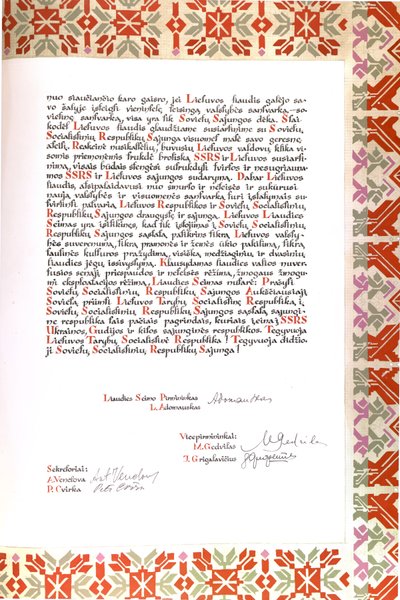 nuo siaučiančio karo gaisro, jei Lietuvos liaudis galėjo sa-
vo šalyje išreikšti vienintelę teisingą valstybės santvarką—so-
vietinę santvarką, visa yra tik Sovietų Sąjungos dėka. Štai
kodėl Lietuvos liaudis glaudžiame susiartinime su Sovietų
Socialistinių Respublikų Sąjunga visuomet matė savo geresnę
ateitį. Reakcinė nusikaltėlių, buvusių Lietuvos valdovų klika vi-
somis priemonėmis trukdė brolišką SSRS ir Lietuvos susiarti-
nimą, visais būdais stengėsi sutrukdyti tvirtos ir nesugriaunamos
SSRS ir Lietuvos sąjungos sudarymą. Dabar Lietuvos
liaudis, atsipalaidavusi nuo smurto ir neteisės ir sukūrusi
naują valstybės ir visuomenės santvarką turi
Respublikų Sąjungos draugystę ir sąjungą. Lietuvos Liaudies
Seimas yra įsitikinęs, kad tik įstojimas į Sovietų Socialistinių
Respublikų Sąjungos sąstatą patikrins tikrą Lietuvos valsty-
bės suvereninumą, tikrą pramonės ir žemės ūkio pakilimą, tikrą
tautinės kultūros pražydimą, visišką medžiaginių ir dvasinių
liaudies jėgų išsivystymą. Klausydamas liaudies valios nuver-
tusios senąjį priespaudos ir neteisės režimą, žmogaus žmogu-
mi eksploatacijos režimą, Liaudies Seimas nutarė: Prašyti
Sovietų Socialistinių Respublikų Sąjungos Aukščiausiąją
Sovietą priimti Lietuvos Tarybų Socialistinę Respubliką į
Sovietų Socialistinių Respublikų Sąjungos sąstatą sąjungi-
ne respublika tais pačiais pagrindais, kuriais įeina į SSRS
Ukrainos, Gudijos ir kitos sąjunginės respublikos. Tegyvuoja
Lietuvos Tarybų Socialistinė Respublika! Tegyvuoja didžio-
ji Sovietų Socialistinių Respublikų Sąjunga!
Liaudies Seimo Pirmininkas
L. Adomauskas
Adomauskas
Vicepirmininkai:
M. Gedvilas
M Gedvila
J. Grigalavičius
Sekretoriai:
A. Venclova
Ant. Venclova
P. Cvirka